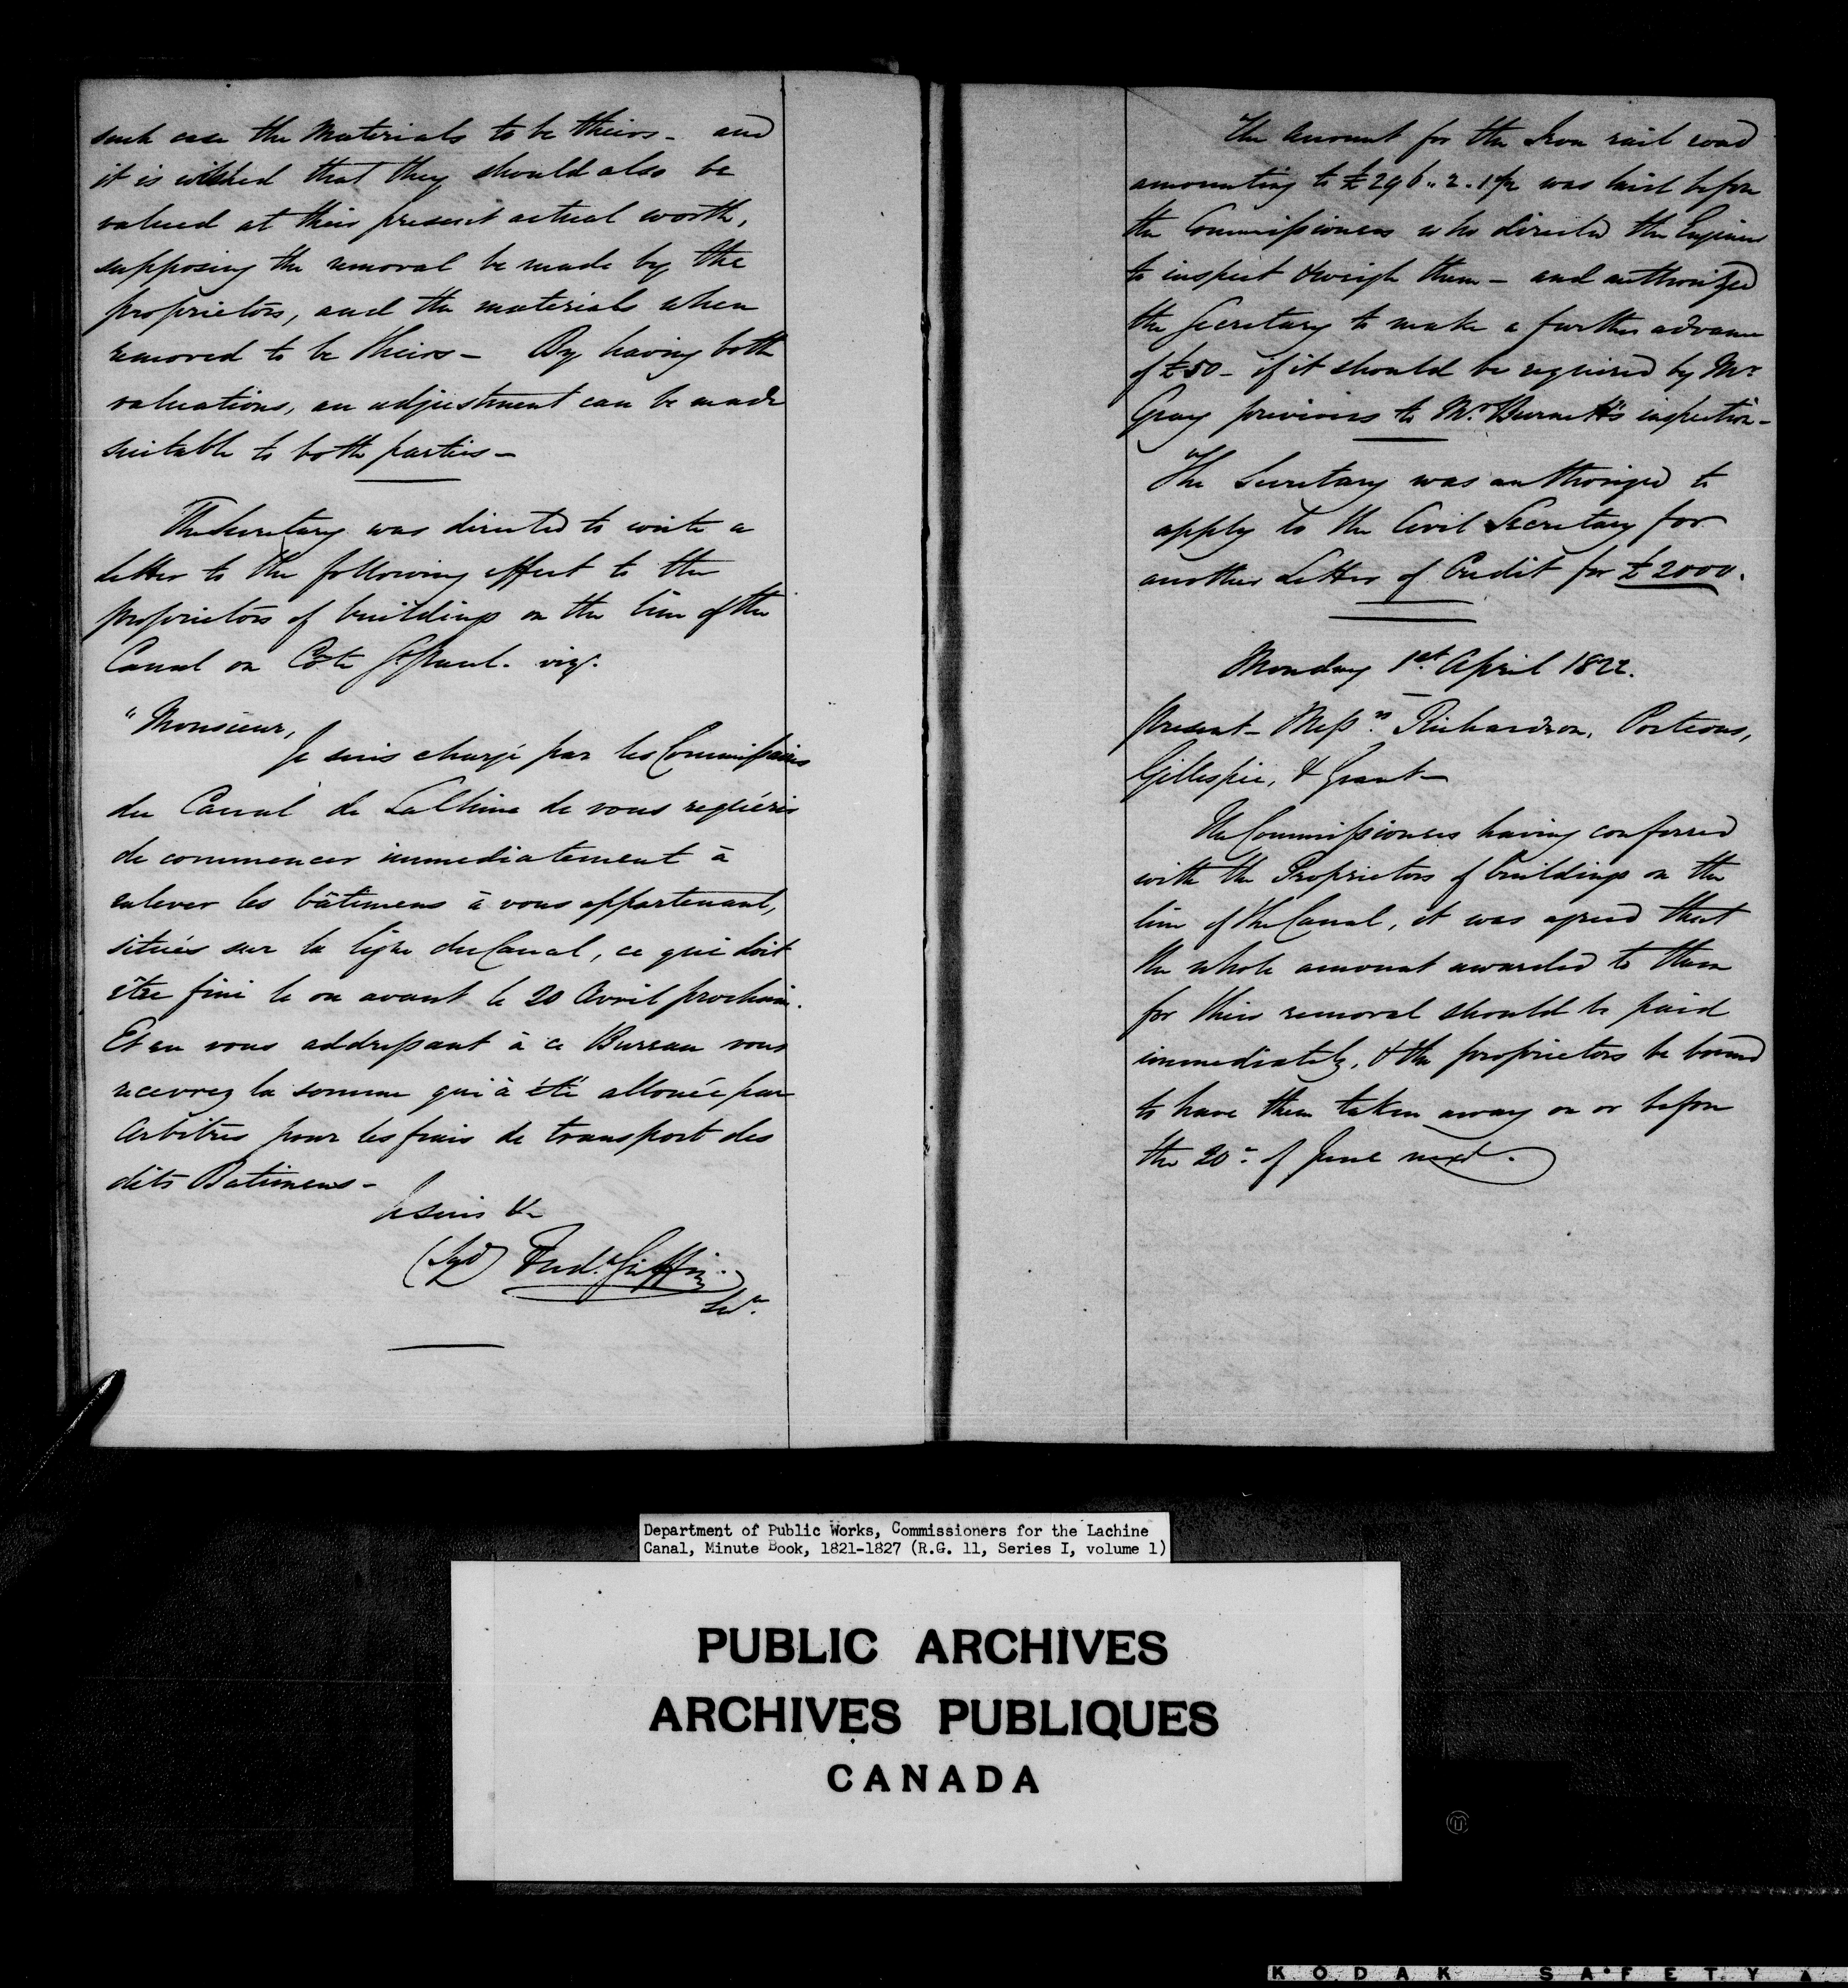 such case the Materials to be theirs – and
it is wished that they should also be
valued at their present actual worth,
supposing the removal be made by the
proprietors, and the materials when
removed to be theirs – By having both
valuations, an adjustment can be made
suitable to both parties –
The Secretary was directed to write a
letter to the following effect to the
proprietors of buildings on the line of the
Canal on Côte St Paul. viz.
"Monsieur,
Je suis chargé par les Commissaires
du Canal de LaChine de vous requérir
de commencer immediatement à
enlever les bâtimens à vous appartenant,
situés sur la ligne du Canal, ce qui doit
être fini le ou avant le 20 Avril prochain.
Et en vous addressant à ce Bureau vous
recevrez la somme qui à été allouée par
Arbitres pour les frais de transport des
dits Batimens –
Je suis &c
(Sgd) Fred. Griffin
Secy.
The Account for the Iron rail road
amounting to £296.. 2. 1½ was laid before
the Commissioners who directed the Engineer
to inspect & weigh them – and authorized
the Secretary to make a further advance
of £50 – if it should be required by Mr
Gray previous to Mr. Burnett's inspection –
The Secretary was authorized to
apply to the Civil Secretary for
another Letter of Credit for £2000.
Monday 1st April 1822.
Present – Messrs. Richardson, Porteous,
Gillespie, & Grant –
The Commissioners having conferred
with the Proprietors of buildings on the
line of the Canal, it was agreed that
the whole amount awarded to them
for their removal should be paid
immediately, & the proprietors be bound
to have them taken away on or before
the 20th of June next.
Department of Public Works, Commissioners for the Lachine
Canal, Minute Book, 1821-1827 (R.G. 11, Series I, volume 1)
PUBLIC ARCHIVES
ARCHIVES PUBLIQUES
CANADA
KODAK SAFETY